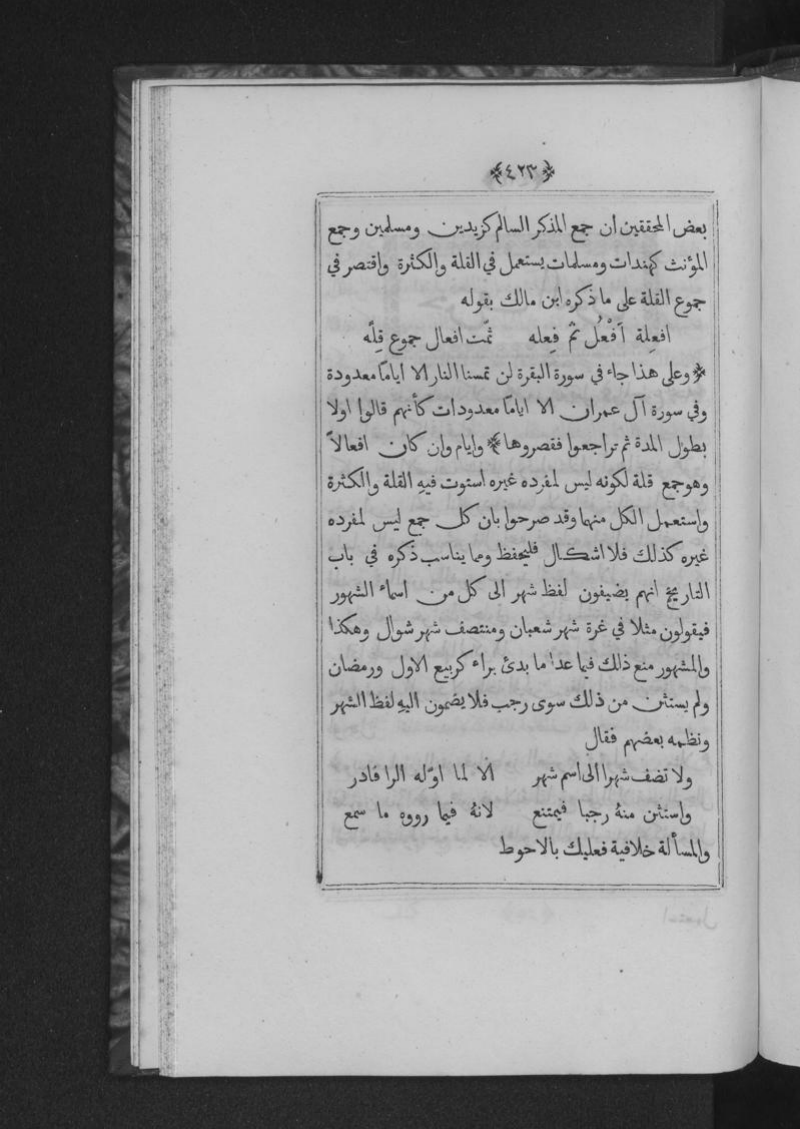 ﴿٤٢٣﴾
بعض المحققين ان جمع المذكر السالم كزيدين ومسلمين وجمع
المؤنث كهندات ومسلمات يستعمل في القلة والكثرة واقتصر في
جموع القلة على ما ذكره ابن مالك بقوله
افعِلة اَفْعُل ثم فِعله ثمّت افعال جموع قِلّه
﴿وعلى هذا جاء في سورة البقرة لن تمسنا النار الا اياما معدودة
وفي سورة آل عمران الا اياما معدودات كأنهم قالوا اولا
بطول المدة ثم تراجعوا فقصروها﴾ وايام وان كان افعالاً
وهو جمع قلة لكونه ليس لمفرده غيره استوت فيه القلة والكثرة
واستعمل الكل منهما وقد صرحوا بان كل جمع ليس لمفرده
غيره كذلك فلا اشكال فليحفظ ومما يناسب ذكره في باب
التاريخ انهم يضيفون لفظ شهر الى كل من اسماء الشهور
فيقولون مثلا في غرة شهر شعبان ومنتصف شهر شوال وهكذا
والمشهور منع ذلك فيما عدا ما بدئ براء كربيع الاول ورمضان
ولم يستثن من ذلك سوى رجب فلا يضمون اليهِ لفظ الشهر
ونظمه بعضهم فقال
ولا تضف شهرا الى اسم شهر الا لما اوّله الرا فادر
واستثن منهُ رجبا فيمتنع لانهُ فيما رووه ما سمع
والمسألة خلافية فعليك بالاحوط
استعمل